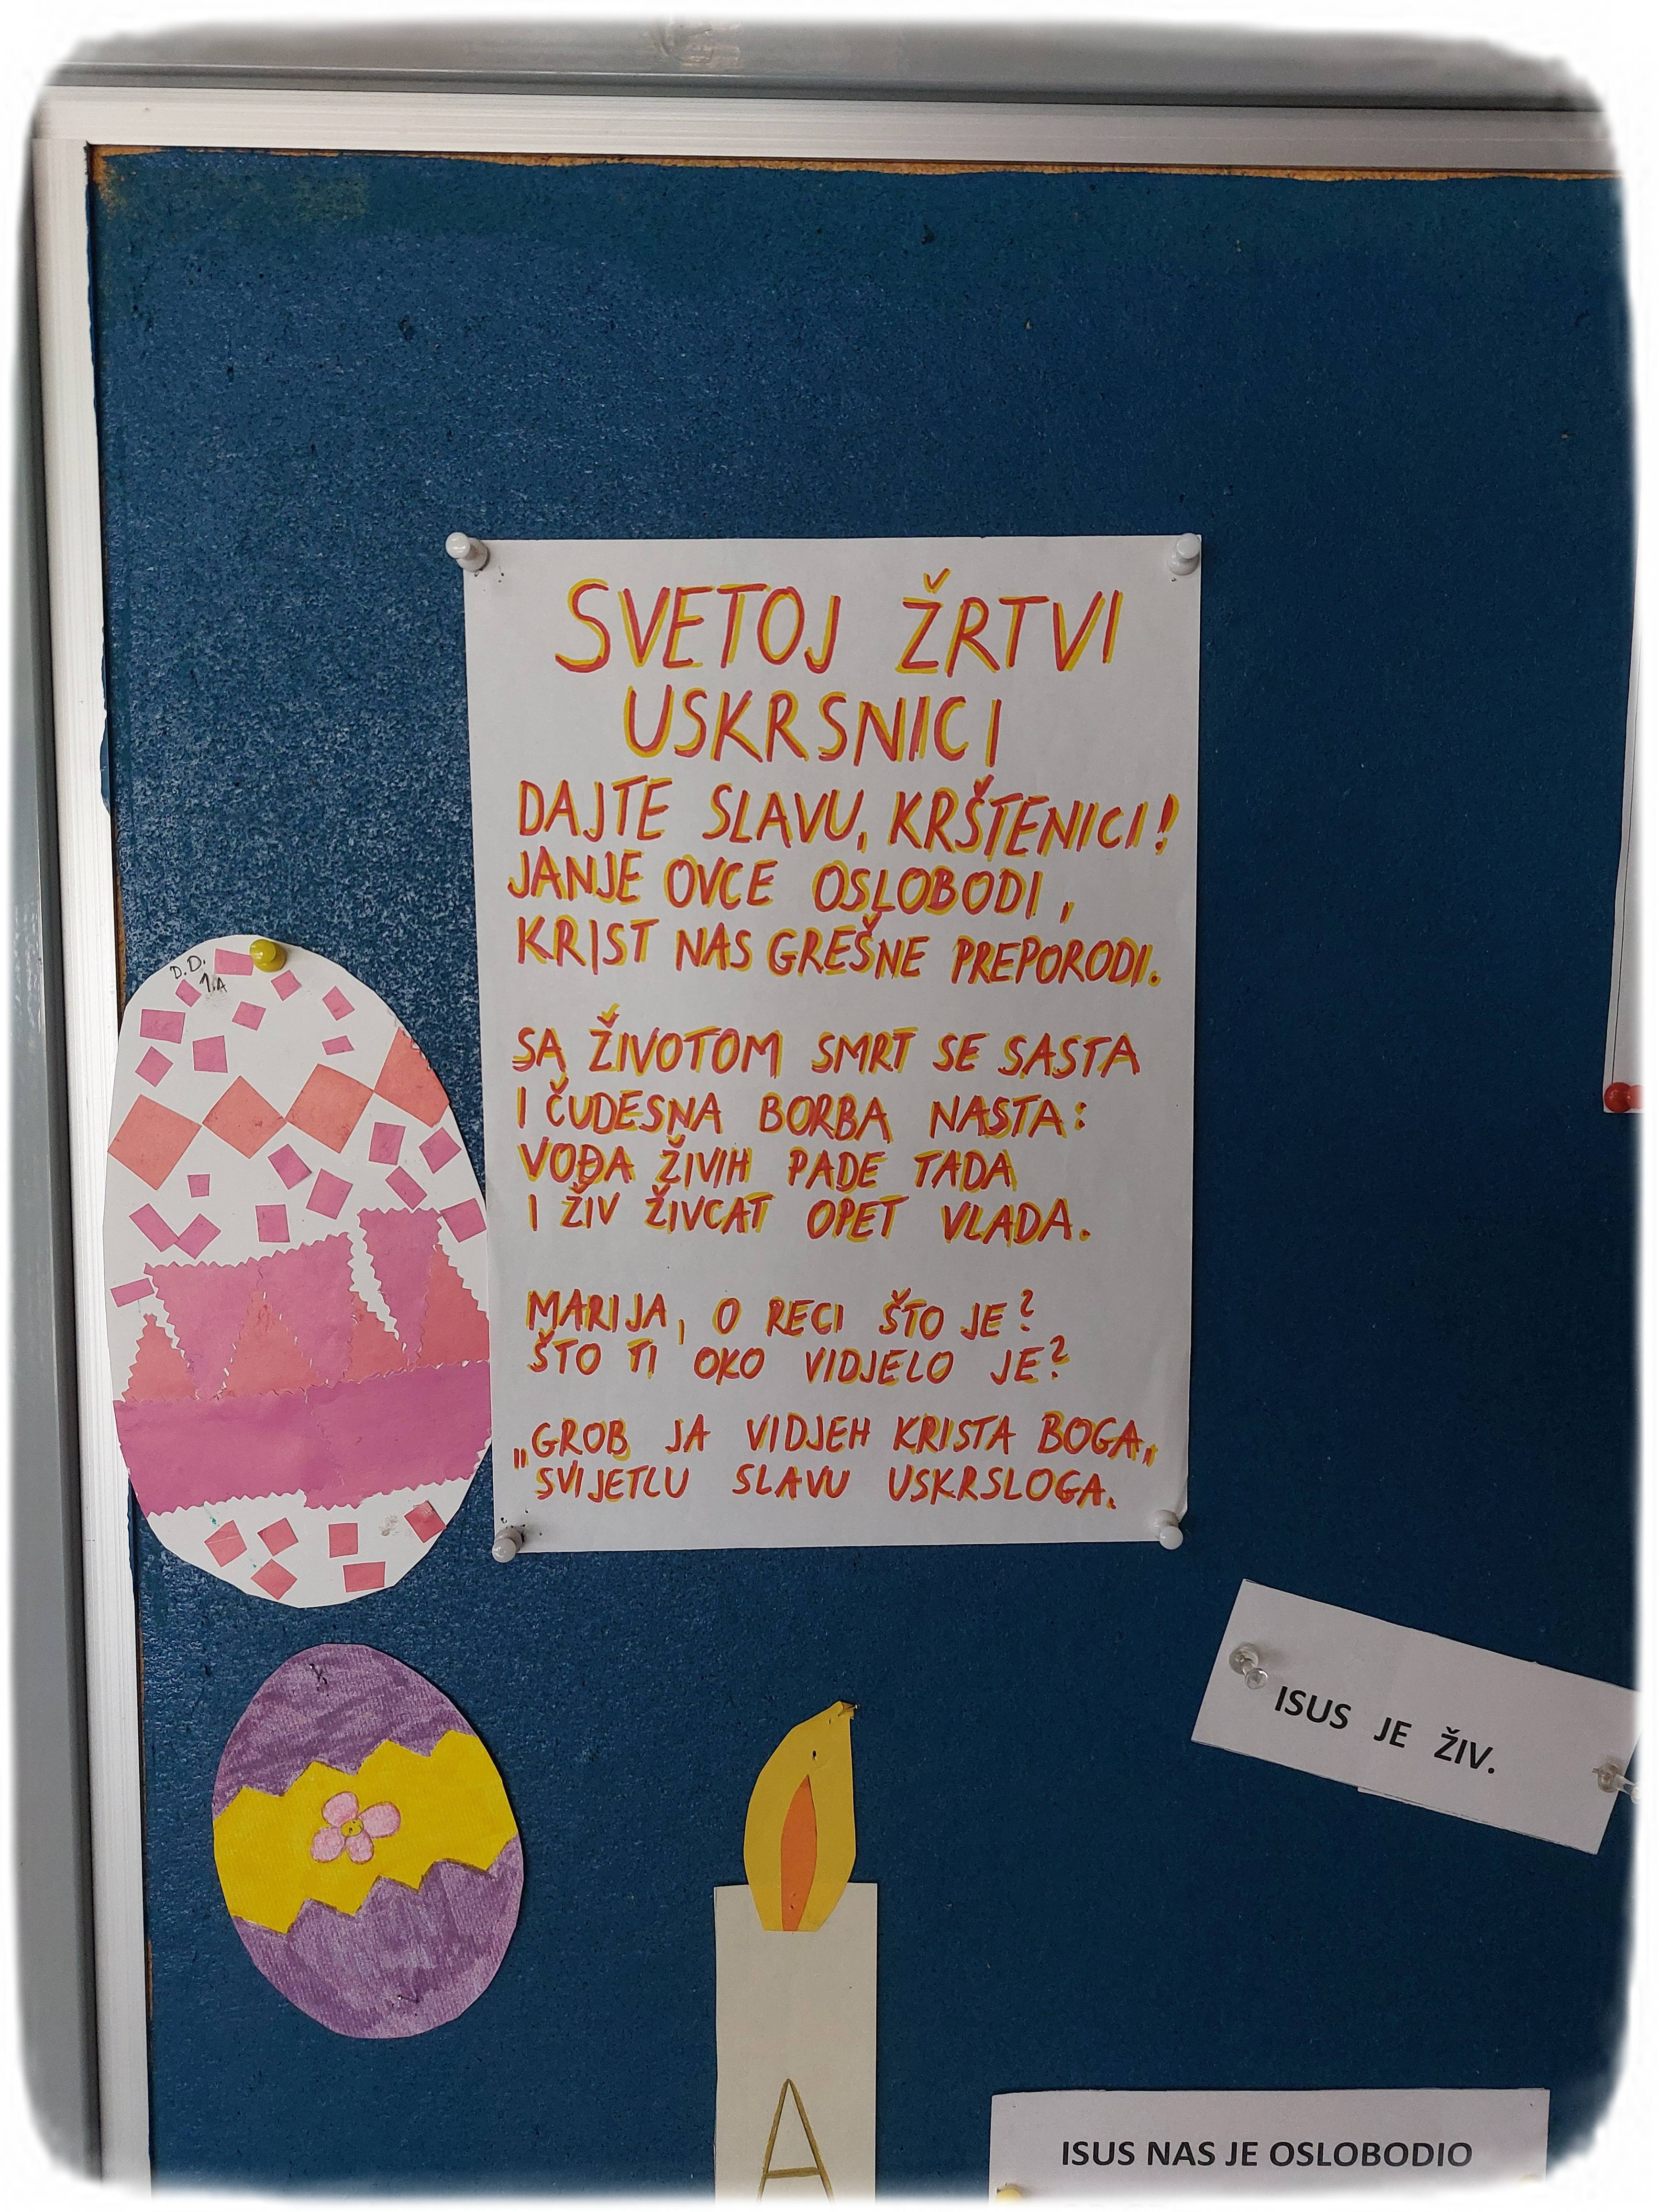 SVETOJ ŽRTVI
USKRSNICI
DAJTE SLAVU, KRŠTENICI!
JANJE OVCE OSLOBODI,
KRIST NAS GREŠNE PREPORODI.
SA ŽIVOTOM SMRT SE SASTA
I ČUDESNA BORBA NASTA:
VOĐA ŽIVIH PADE TADA
I ŽIV ŽIVCAT OPET VLADA.
MARIJA, O RECI ŠTO JE?
ŠTO TI OKO VIDJELO JE?
„GROB JA VIDJEH KRISTA BOGA„
SVIJETLU SLAVU USKRSLOGA.
D.D.
1.A
ISUS JE ŽIV.
A
ISUS NAS JE OSLOBODIO